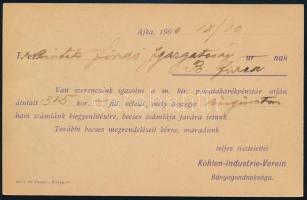 Ajka, 1900 IX/10
T. czimzett Forrás Igazgatóság úr nak
B. füred
Van szerencsénk igazolni a m. kir. postatakarékpénztár utján
átutalt 315 kor. fill. vételét, mely összeget augusztus
havi számlánk kiegyenlítésére, becses számlája javára irtunk.
További becses megrendeléseit kérve, maradunk
teljes tisztelettel
Kohlen-Industrie-Verein
Bányagondnoksága.